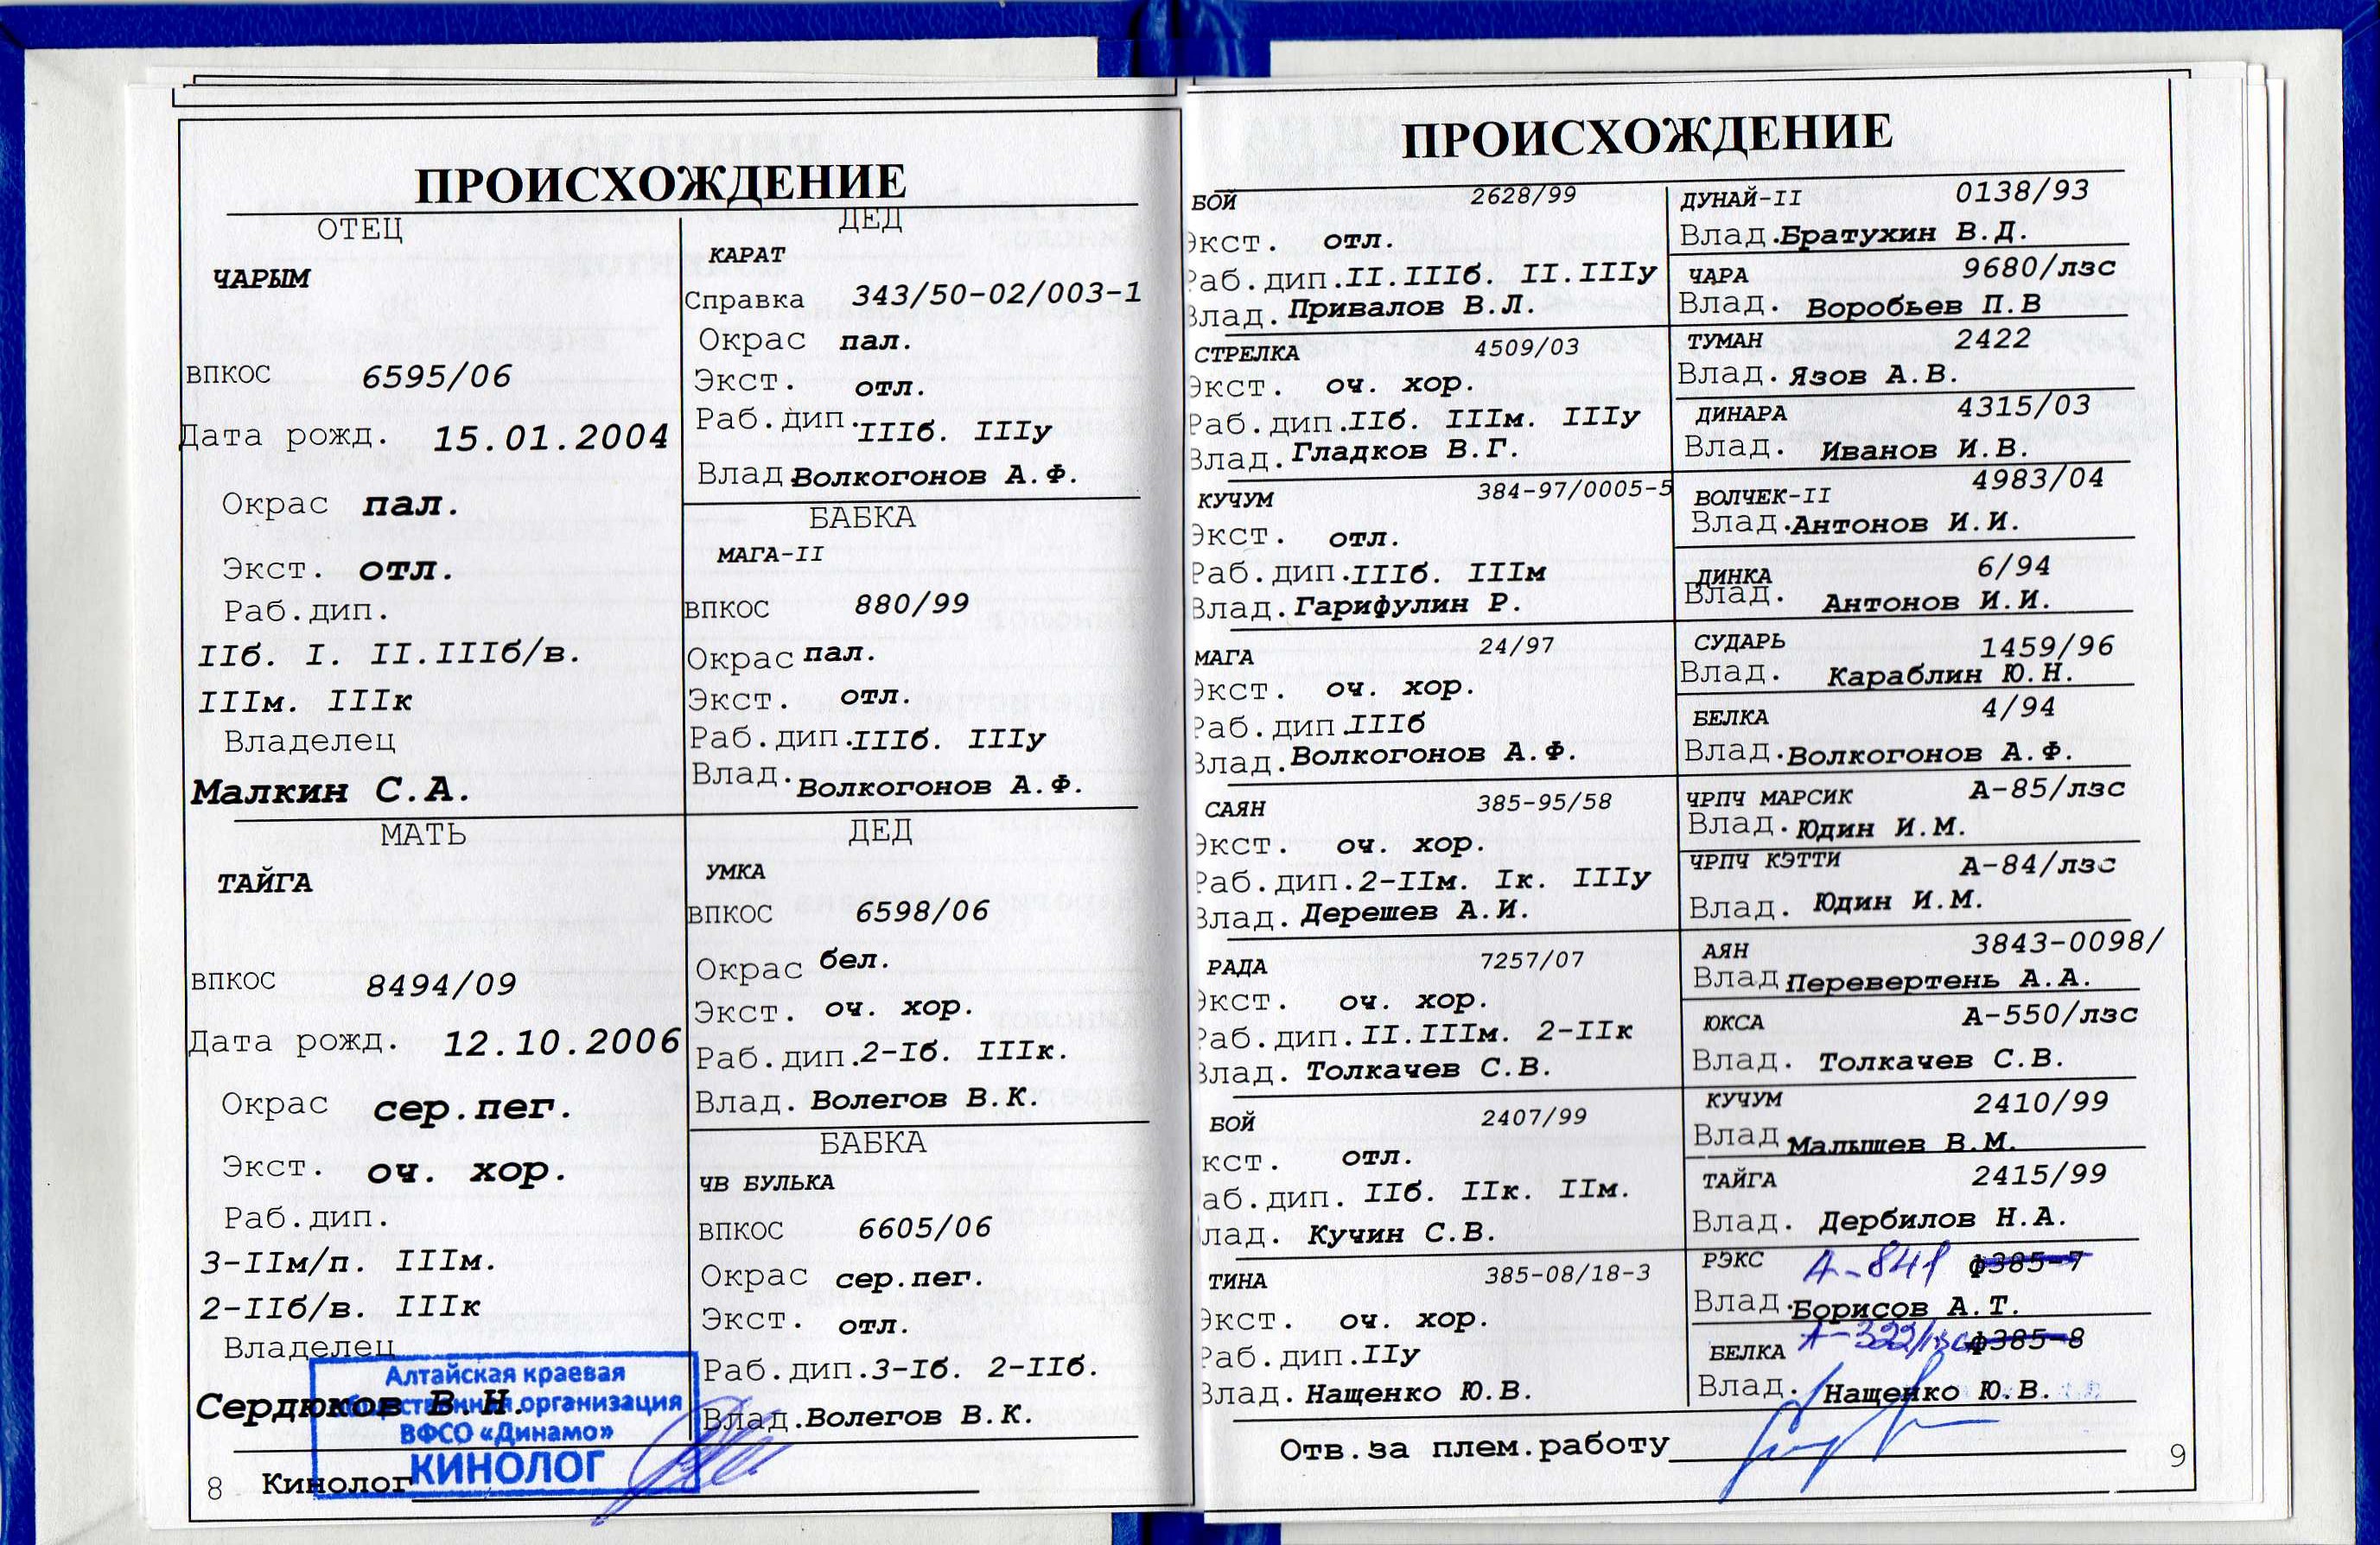 ПРОИСХОЖДЕНИЕ
ОТЕЦ
ЧАРЫМ
ВПКОС 6595/06
Дата рожд. 15.01.2004
Окрас пал.
Экст. отл.
Раб.дип.
IIб. I. II.IIIб/в.
IIIм. IIIк
Владелец
Малкин С.А.
ДЕД
КАРАТ
Справка 343/50-02/003-1
Окрас пал.
Экст. отл.
Раб.дип. IIIб. IIIу
Влад Волкогонов А.Ф.
БАБКА
МАГА-II
ВПКОС 880/99
Окрас пал.
Экст. отл.
Раб.дип. IIIб. IIIу
Влад. Волкогонов А.Ф.
МАТЬ
ТАЙГА
ВПКОС 8494/09
Дата рожд. 12.10.2006
Окрас сер.пег.
Экст. оч. хор.
Раб.дип.
3-IIм/п. IIIм.
2-IIб/в. IIIк
Владелец
Сердюков В.Н.
ДЕД
УМКА
ВПКОС 6598/06
Окрас бел.
Экст. оч. хор.
Раб.дип. 2-Iб. IIIк.
Влад. Волегов В.К.
БАБКА
ЧВ БУЛЬКА
ВПКОС 6605/06
Окрас сер.пег.
Экст. отл.
Раб.дип. 3-Iб. 2-IIб.
Влад. Волегов В.К.
Алтайская краевая
общественная организация
ВФСО «Динамо»
КИНОЛОГ
8 Кинолог
ПРОИСХОЖДЕНИЕ
БОЙ 2628/99
Экст. отл.
Раб.дип. II.IIIб. II.IIIу
Влад. Привалов В.Л.
СТРЕЛКА 4509/03
Экст. оч. хор.
Раб.дип. IIб. IIIм. IIIу
Влад. Гладков В.Г.
КУЧУМ 384-97/0005-5
Экст. отл.
Раб.дип. IIIб. IIIм
Влад. Гарифулин Р.
МАГА 24/97
Экст. оч. хор.
Раб.дип. IIIб
Влад. Волкогонов А.Ф.
САЯН 385-95/58
Экст. оч. хор.
Раб.дип. 2-IIм. Iк. IIIу
Влад. Дерешев А.И.
РАДА 7257/07
Экст. оч. хор.
Раб.дип. II.IIIм. 2-IIк
Влад. Толкачев С.В.
БОЙ 2407/99
кст. отл.
аб.дип. IIб. IIк. IIм.
лад. Кучин С.В.
ТИНА 385-08/18-3
Экст. оч. хор.
Раб.дип. IIу
Влад. Нащенко Ю.В.
ДУНАЙ-II 0138/93
Влад. Братухин В.Д.
ЧАРА 9680/лзс
Влад. Воробьев П.В
ТУМАН 2422
Влад. Язов А.В.
ДИНАРА 4315/03
Влад. Иванов И.В.
ВОЛЧЕК-II 4983/04
Влад. Антонов И.И.
ДИНКА 6/94
Влад. Антонов И.И.
СУДАРЬ 1459/96
Влад. Караблин Ю.Н.
БЕЛКА 4/94
Влад. Волкогонов А.Ф.
ЧРПЧ МАРСИК А-85/лзс
Влад. Юдин И.М.
ЧРПЧ КЭТТИ А-84/лзс
Влад. Юдин И.М.
АЯН 3843-0098/
Влад Перевертень А.А.
ЮКСА А-550/лзс
Влад. Толкачев С.В.
КУЧУМ 2410/99
Влад. Малышев В.М.
ТАЙГА 2415/99
Влад. Дербилов Н.А.
РЭКС А-841 ф385-7
Влад. Борисов А.Т.
БЕЛКА А-322/лзс ф385-8
Влад. Нащенко Ю.В.
Отв.за плем.работу
9